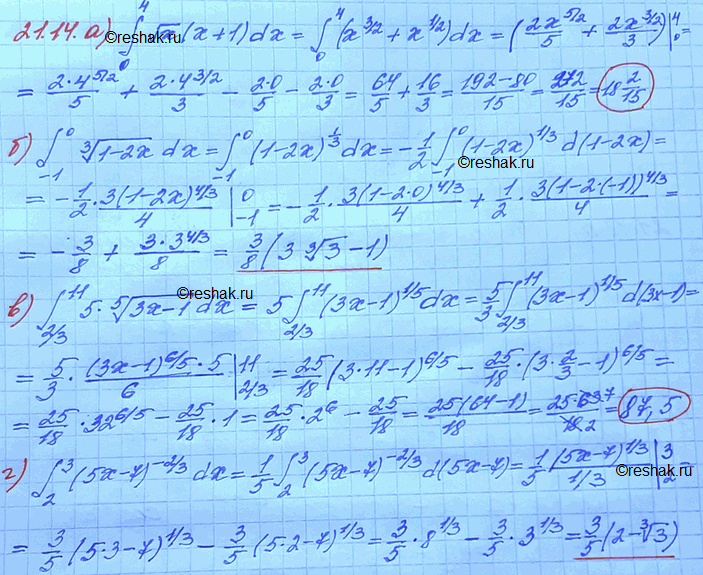 21.14. а) ∫₀⁴ √x (x+1) dx = ∫₀⁴ (x^{3/2} + x^{1/2}) dx = (2x^{5/2}/5 + 2x^{3/2}/3)|₀⁴ =
= 2·4^{5/2}/5 + 2·4^{3/2}/3 − 2·0/5 − 2·0/3 = 64/5 + 16/3 = (192−80)/15 = 272/15 = 18 2/15
©reshak.ru
б) ∫₋₁⁰ ∛(1−2x) dx = ∫₋₁⁰ (1−2x)^{1/3} dx = −1/2 ∫₋₁⁰ (1−2x)^{1/3} d(1−2x) =
©reshak.ru
= −1/2 · 3(1−2x)^{4/3}/4 |₋₁⁰ = −1/2 · 3(1−2·0)^{4/3}/4 + 1/2 · 3(1−2·(−1))^{4/3}/4 =
= −3/8 + 3·3^{4/3}/8 = 3/8 (3∛3 − 1)
©reshak.ru
в) ∫_{2/3}^{11} 5·⁵√(3x−1) dx = 5 ∫_{2/3}^{11} (3x−1)^{1/5} dx = 5/3 ∫_{2/3}^{11} (3x−1)^{1/5} d(3x−1) =
= 5/3 · (3x−1)^{6/5}·5/6 |_{2/3}^{11} = 25/18 (3·11−1)^{6/5} − 25/18 · (3·2/3 − 1)^{6/5} =
= 25/18 · 32^{6/5} − 25/18 · 1 = 25/18 · 2⁶ − 25/18 = 25(64−1)/18 = 25·63 7/18 2 = 87,5
г) ∫₂³ (5x−7)^{−2/3} dx = 1/5 ∫₂³ (5x−7)^{−2/3} d(5x−7) = 1/5 (5x−7)^{1/3}/(1/3) |₂³ =
©reshak.ru
= 3/5 (5·3−7)^{1/3} − 3/5 (5·2−7)^{1/3} = 3/5 · 8^{1/3} − 3/5 · 3^{1/3} = 3/5 (2−∛3)